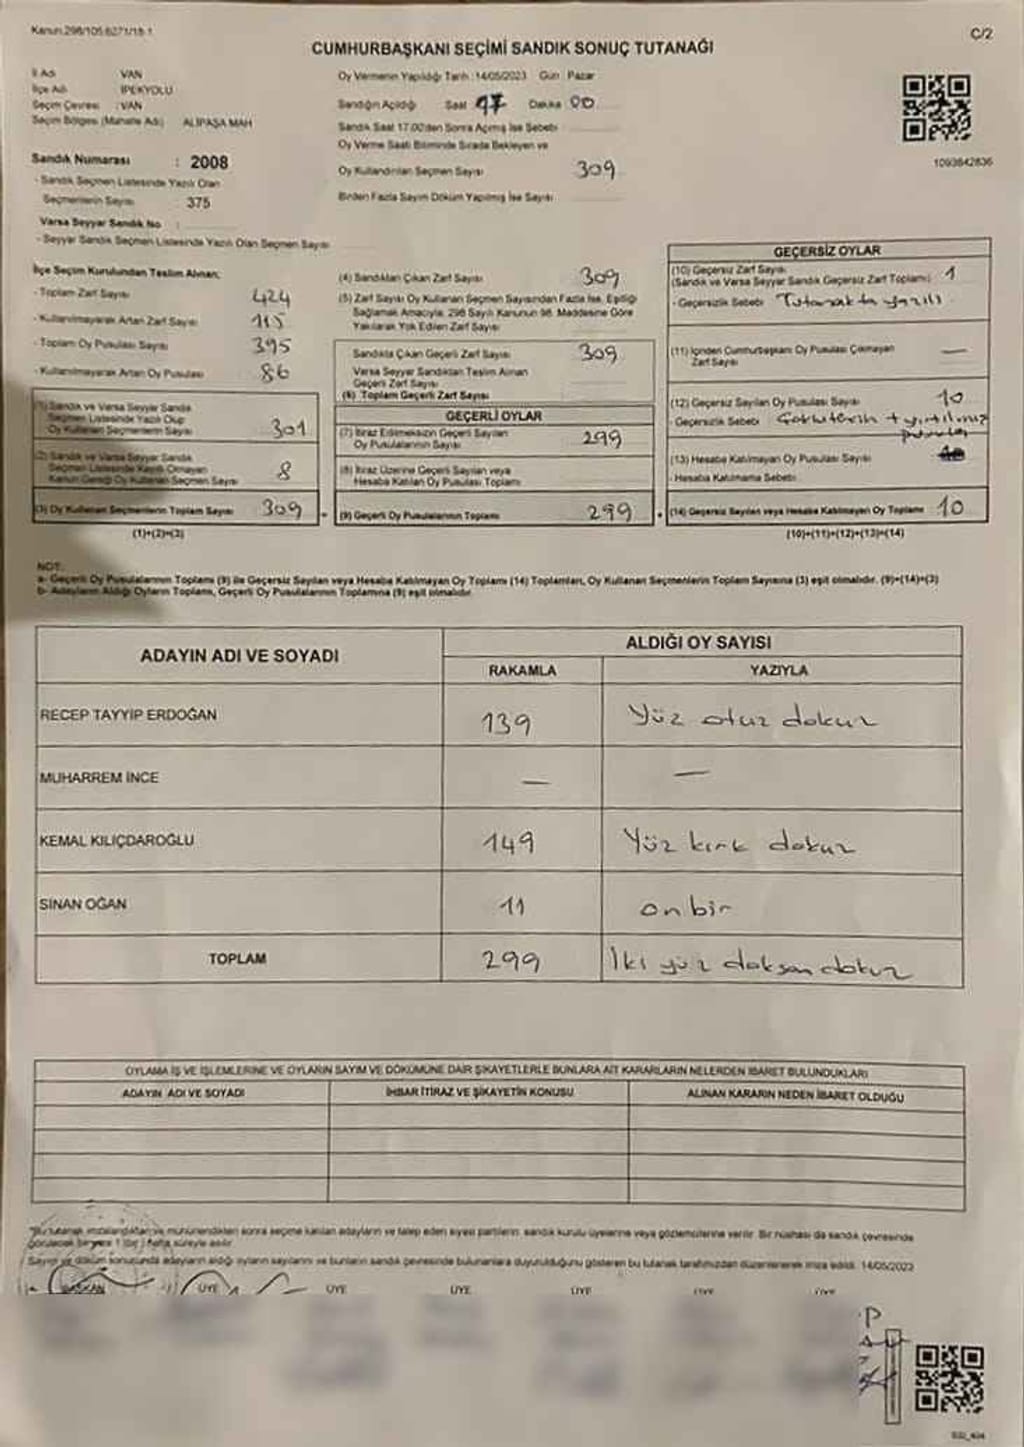 Kanun 298/105 6271/18-1
C/2
CUMHURBAŞKANI SEÇİMİ SANDIK SONUÇ TUTANAĞI
İl Adı : VAN
İlçe Adı : İPEKYOLU
Seçim Çevresi : VAN
Seçim Bölgesi (Mahalle Adı) ALİPAŞA MAH
Sandık Numarası : 2008
- Sandık Seçmen Listesinde Yazılı Olan
Seçmenlerin Sayısı 375
Varsa Seyyar Sandık No :
- Seyyar Sandık Seçmen Listesinde Yazılı Olan Seçmen Sayısı
Oy Vermenin Yapıldığı Tarih : 14/05/2023 Gün : Pazar
Sandığın Açıldığı Saat 17 Dakika 00
Sandık Saat 17.00'den Sonra Açılmış İse Sebebi
Oy Verme Saati Bitiminde Sırada Bekleyen ve
Oy Kullandırılan Seçmen Sayısı 309
Birden Fazla Sayım Döküm Yapılmış İse Sayısı
1093842836
İlçe Seçim Kurulundan Teslim Alınan;
- Toplam Zarf Sayısı 424
- Kullanılmayarak Artan Zarf Sayısı 115
- Toplam Oy Pusulası Sayısı 395
- Kullanılmayarak Artan Oy Pusulası 86
(1) Sandık ve Varsa Seyyar Sandık
Seçmen Listesinde Yazılı Olup
Oy Kullanan Seçmenlerin Sayısı 301
(2) Sandık ve Varsa Seyyar Sandık
Seçmen Listesinde Kayıtlı Olmayan
Kanun Gereği Oy Kullanan Seçmen Sayısı 8
(3) Oy Kullanan Seçmenlerin Toplam Sayısı 309
(1)+(2)=(3)
(4) Sandıktan Çıkan Zarf Sayısı 309
(5) Zarf Sayısı Oy Kullanan Seçmen Sayısından Fazla İse, Eşitliği
Sağlamak Amacıyla, 298 Sayılı Kanunun 98. Maddesine Göre
Yakılarak Yok Edilen Zarf Sayısı
Sandıkta Çıkan Geçerli Zarf Sayısı 309
Varsa Seyyar Sandıktan Teslim Alınan
Geçerli Zarf Sayısı
(6) Toplam Geçerli Zarf Sayısı
GEÇERLİ OYLAR
(7) İtiraz Edilmeksizin Geçerli Sayılan
Oy Pusulalarının Sayısı 299
(8) İtiraz Üzerine Geçerli Sayılan veya
Hesaba Katılan Oy Pusulası Toplamı
(9) Geçerli Oy Pusulalarının Toplamı 299
GEÇERSİZ OYLAR
(10) Geçersiz Zarf Sayısı
(Sandık ve Varsa Seyyar Sandık Geçersiz Zarf Toplamı) 1
- Geçersizlik Sebebi Tutanakta yazılı
(11) İçinden Cumhurbaşkanı Oy Pusulası Çıkmayan
Zarf Sayısı —
(12) Geçersiz Sayılan Oy Pusulası Sayısı 10
- Geçersizlik Sebebi + yırtılmış
pusula
(13) Hesaba Katılmayan Oy Pusulası Sayısı
- Hesaba Katılmama Sebebi
(14) Geçersiz Sayılan veya Hesaba Katılmayan Oy Toplamı 10
(10)+(11)+(12)+(13)=(14)
NOT:
a- Geçerli Oy Pusulalarının Toplamı (9) ile Geçersiz Sayılan veya Hesaba Katılmayan Oy Toplamı (14) Toplamları, Oy Kullanan Seçmenlerin Toplam Sayısına (3) eşit olmalıdır. (9)+(14)=(3)
b- Adayların Aldığı Oyların Toplamı, Geçerli Oy Pusulalarının Toplamına (9) eşit olmalıdır.
ADAYIN ADI VE SOYADI ALDIĞI OY SAYISI
RAKAMLA YAZIYLA
RECEP TAYYİP ERDOĞAN 139 Yüz otuz dokuz
MUHARREM İNCE — —
KEMAL KILIÇDAROĞLU 149 Yüz kırk dokuz
SİNAN OĞAN 11 on bir
TOPLAM 299 İki yüz doksan dokuz
OYLAMA İŞ VE İŞLEMLERİNE VE OYLARIN SAYIM VE DÖKÜMÜNE DAİR ŞİKAYETLERLE BUNLARA AİT KARARLARIN NELERDEN İBARET BULUNDUKLARI
ADAYIN ADI VE SOYADI İHBAR İTİRAZ VE ŞİKAYETİN KONUSU ALINAN KARARIN NEDEN İBARET OLDUĞU
*Bu tutanak imzalandıktan ve mühürlendikten sonra seçime katılan adayların ve talep eden siyasi partilerin sandık kurulu üyelerine veya gözlemcilerine verilir. Bir nüshası da sandık çevresinde
görülecek bir yere 1 (bir) hafta süreyle asılır.
Sayım ve döküm sonucunda adayların aldığı oyların sayılarını ve bunların sandık çevresinde bulunanlara duyurulduğunu gösteren bu tutanak tarafımızdan düzenlenerek imza edildi. 14/05/2023
BAŞKAN ÜYE ÜYE ÜYE ÜYE ÜYE ÜYE